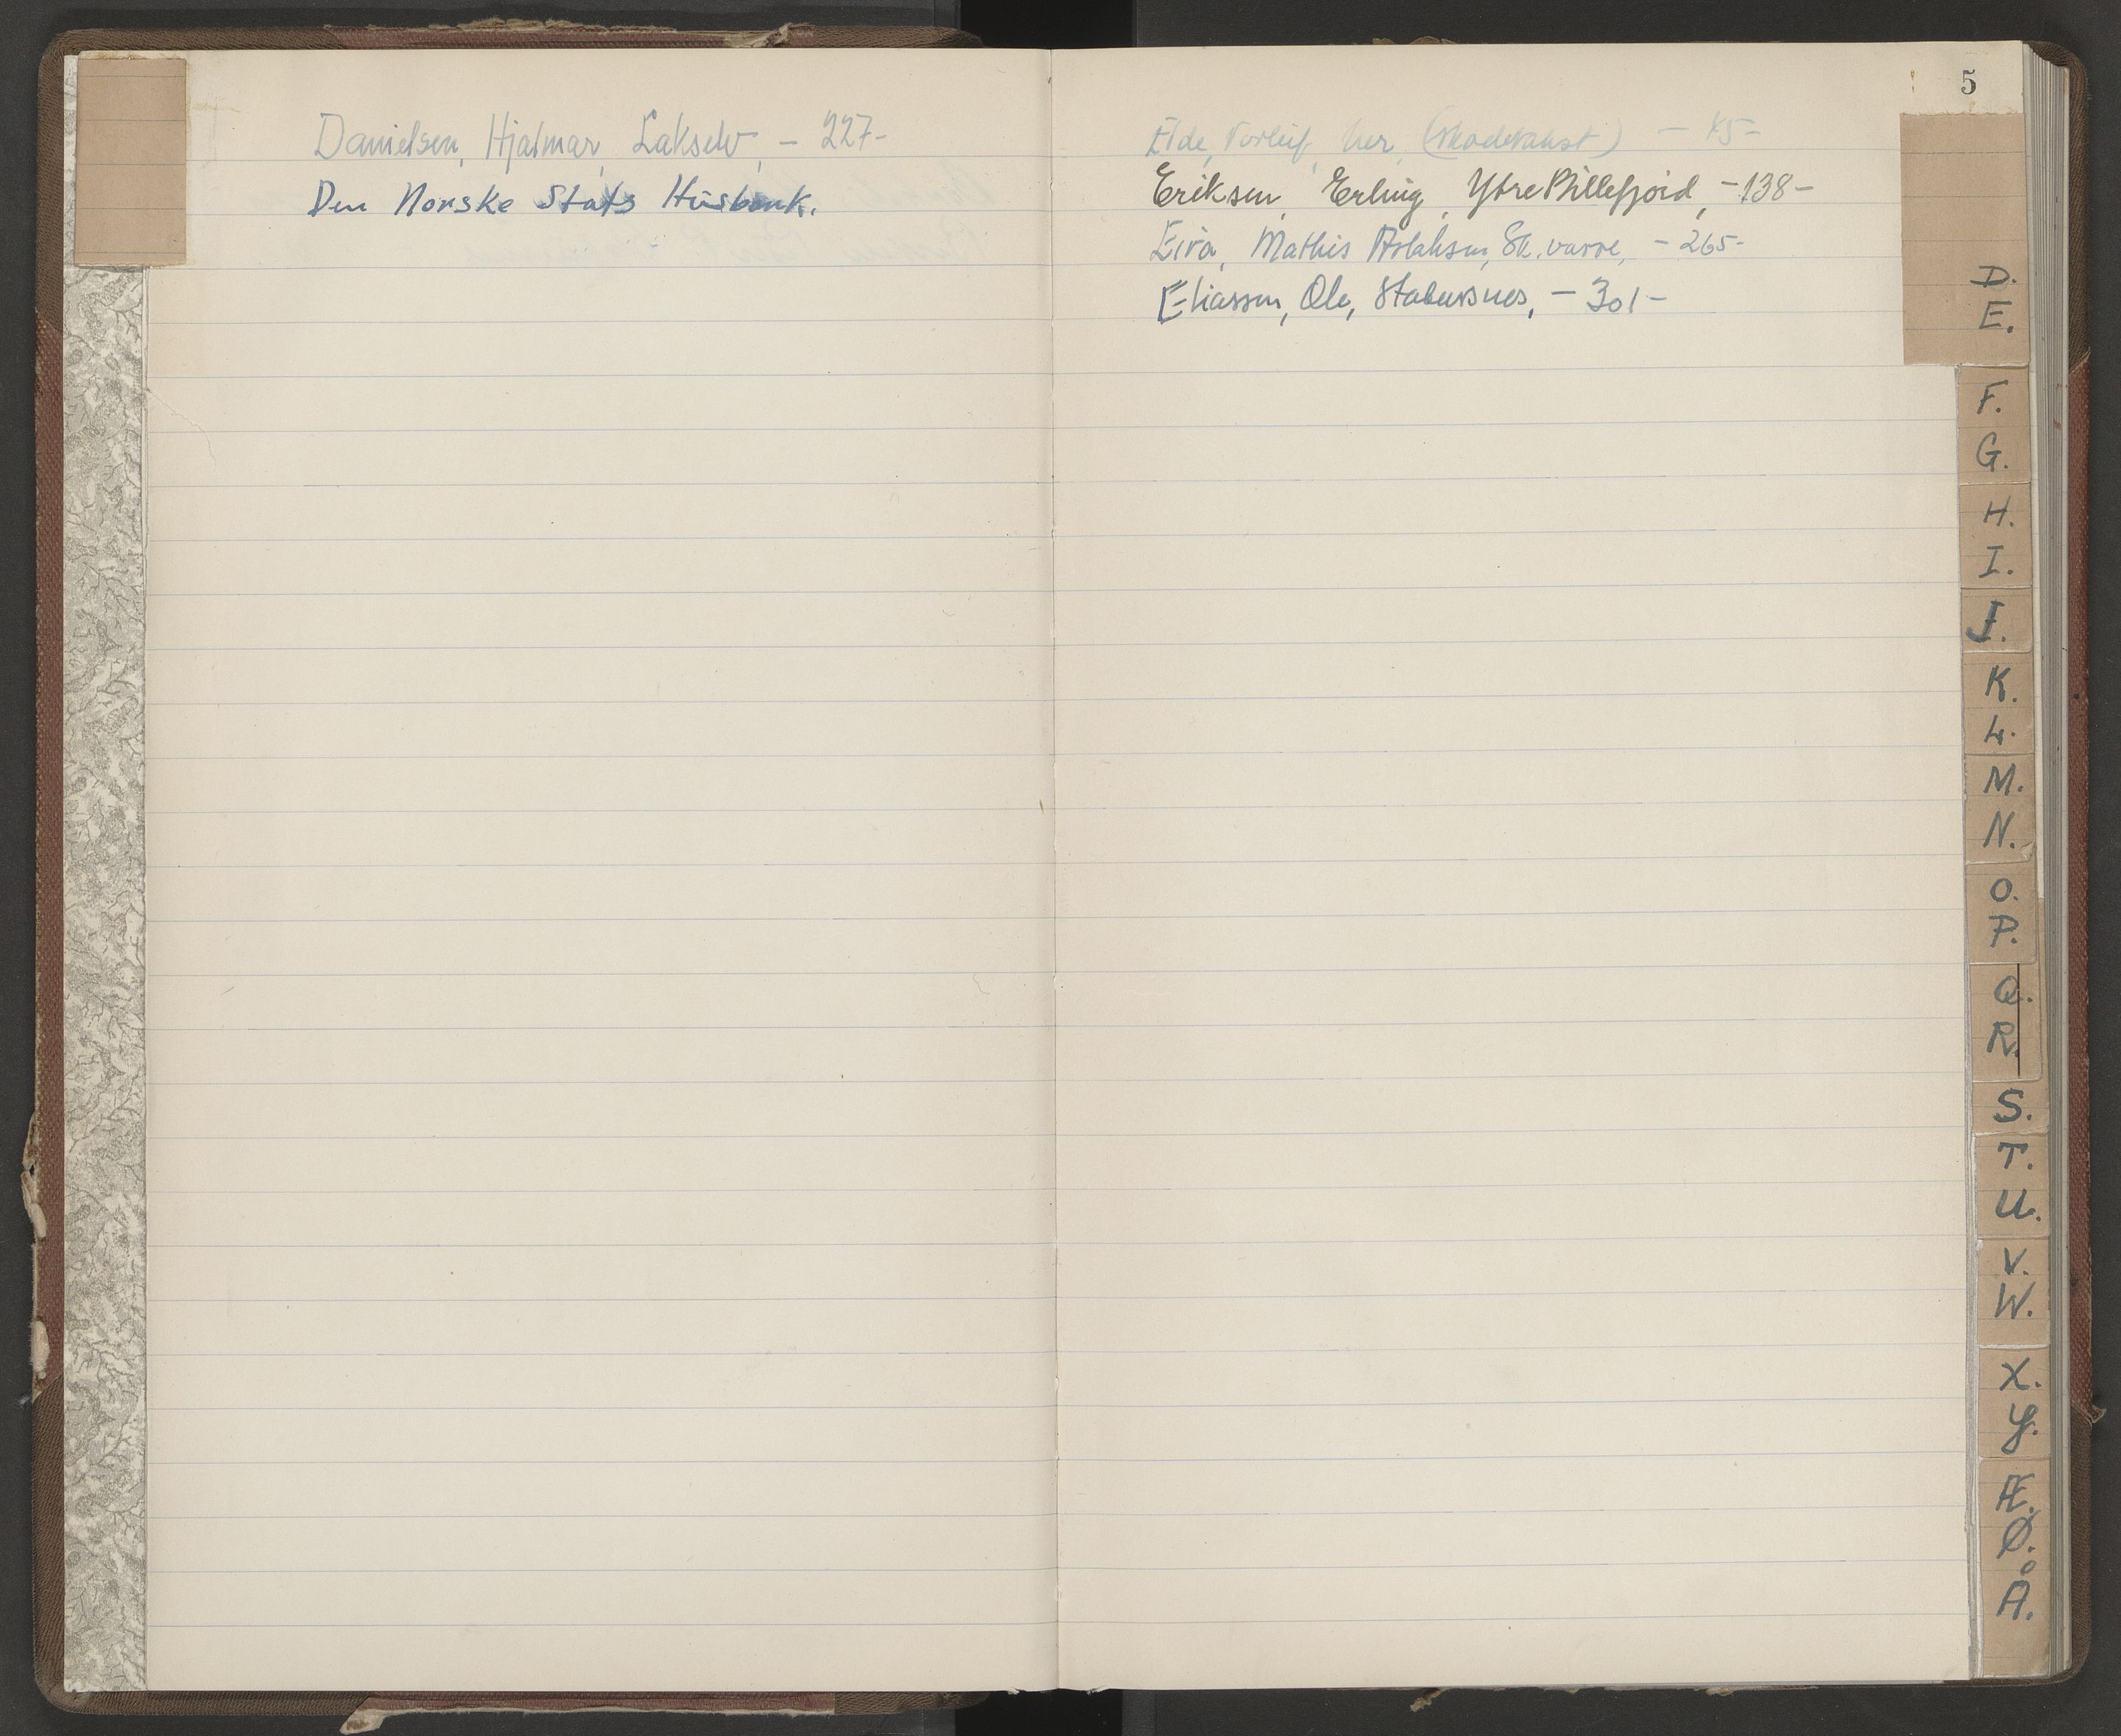 Danielsen, Hjalmar, Lakselv, - 227-
Den Norske Stats Husbank.
5
Elde, Torleif, her, - 45-
Eriksen, Erling, Ytre Billefjord, -138-
Eira, Mathis Aslaksen, Sk.varre, - 265-
Eliassen, Ole, Stabursnes, - 301-
D.
E.
F.
G.
H.
I.
J.
K.
L.
M.
N.
O.
P.
Q.
R.
S.
T.
U.
V.
W.
X.
Y.
Æ.
Ø.
Å.